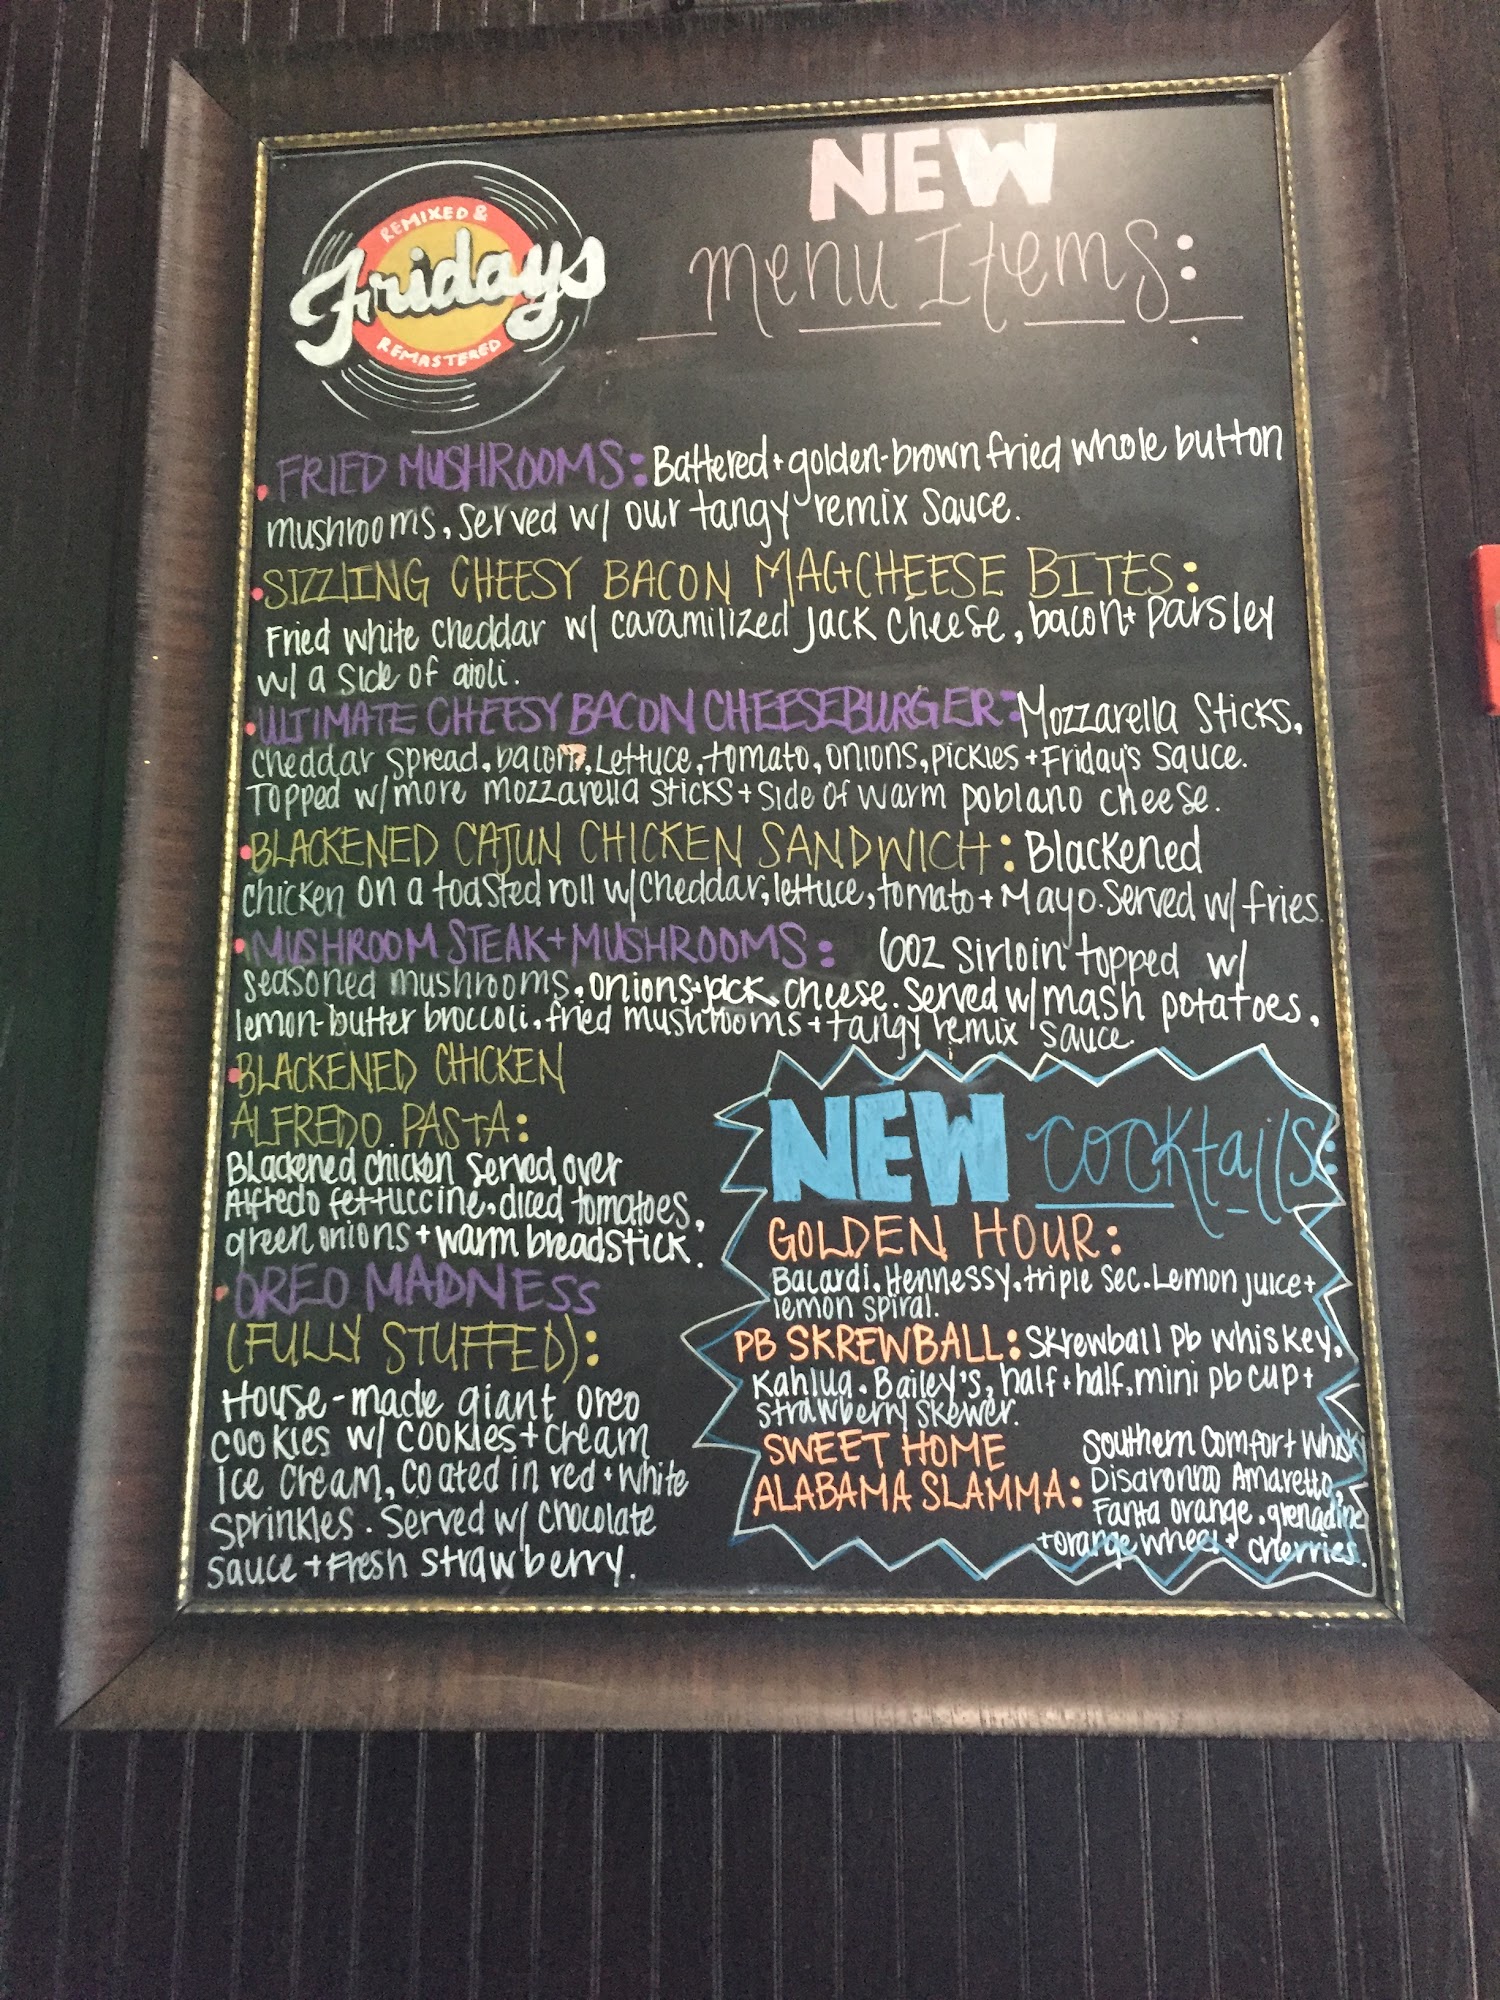 NEW
REMIXED &
Fridays
REMASTERED
menu Items:
• FRIED MUSHROOMS: Battered + golden-brown fried whole button
mushrooms, served w/ our tangy remix sauce.
• SIZZLING CHEESY BACON MAC+CHEESE BITES:
Fried white cheddar w/ caramilized Jack cheese, bacon + parsley
w/ a side of aioli.
• ULTIMATE CHEESY BACON CHEESEBURGER: Mozzarella Sticks,
cheddar spread, bacon, Lettuce, tomato, onions, pickles + Friday's Sauce.
Topped w/ more mozzarella sticks + side of warm poblano cheese.
• BLACKENED CAJUN CHICKEN SANDWICH: Blackened
chicken on a toasted roll w/ cheddar, lettuce, tomato + Mayo. Served w/ fries.
• MUSHROOM STEAK + MUSHROOMS: 6oz Sirloin topped w/
seasoned mushrooms, onions + jack cheese. Served w/ mash potatoes,
lemon-butter broccoli, fried mushrooms + tangy remix sauce.
• BLACKENED CHICKEN
ALFREDO PASTA:
Blackened chicken served over
Alfredo fettuccine, diced tomatoes,
green onions + warm breadstick.
• OREO MADNESS
(FULLY STUFFED):
House-made giant oreo
cookies w/ cookies + cream
ice cream, coated in red + white
sprinkles. Served w/ chocolate
sauce + Fresh strawberry.
NEW cocktails:
GOLDEN HOUR:
Bacardi, Hennessy, triple sec. Lemon juice +
lemon spiral.
PB SKREWBALL: Skrewball pb whiskey,
Kahlua, Bailey's, half + half, mini pb cup +
strawberry skewer.
SWEET HOME
ALABAMA SLAMMA:
Southern Comfort Whisky
Disaronno Amaretto,
Fanta orange, grenadine
+ orange wheel + cherries.